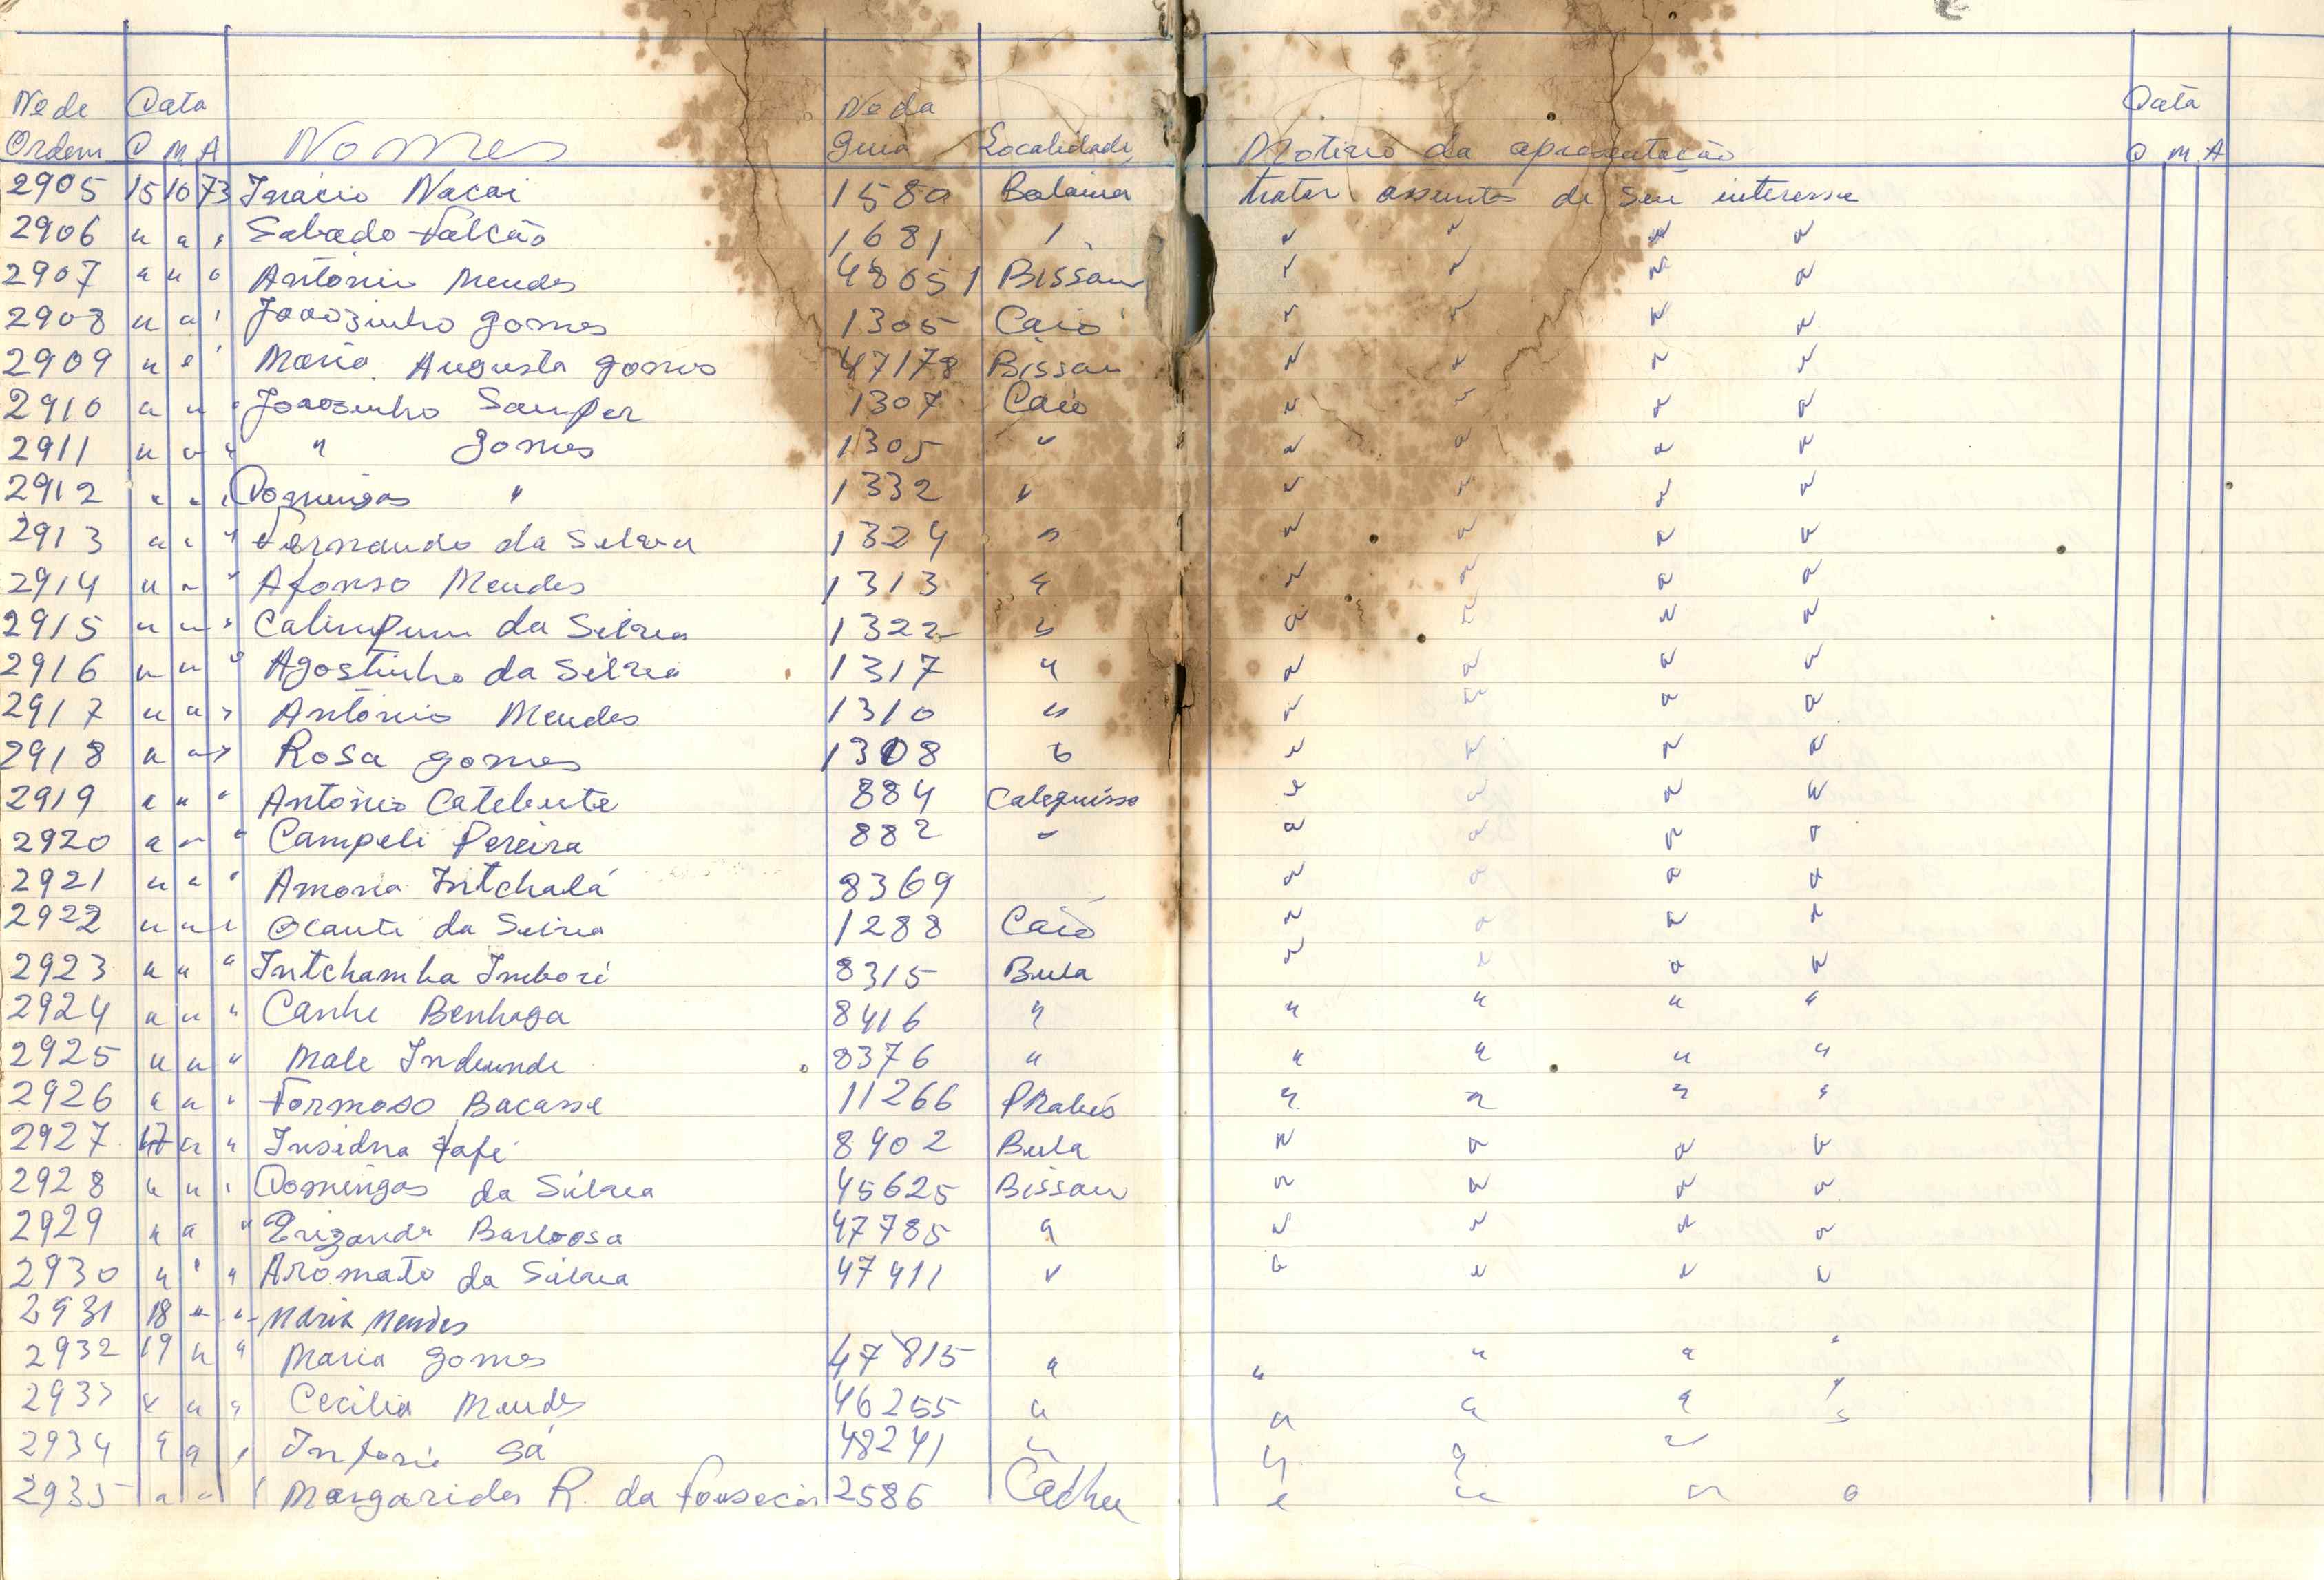 Nº de Data Nº da Data
Ordem D M A Nomes guia Localidade Motivo da apresentação D M A
2905 15 10 73 Inácio Nacai 1580 Balaina tratar assuntos de seu interesse
2906 " " " Sabado Falcão 1681 " " " " "
2907 " " " António Mendes 48051 Bissau " " " "
2908 " " " Joaozinho Gomes 1305 Caió " " " "
2909 " " " Maria Augusta Gomes 47178 Bissau " " " "
2910 " " " Joaozinho Samper 1307 Caió " " " "
2911 " " " " Gomes 1305 " " " " "
2912 " " " Domingas " 1332 " " " " "
2913 " " " Fernando da Silva 1324 " " " " "
2914 " " " Afonso Mendes 1313 " " " " "
2915 " " " Calimpum da Silva 1322 " " " " "
2916 " " " Agostinho da Silva 1317 " " " " "
2917 " " " António Mendes 1310 " " " " "
2918 " " " Rosa Gomes 1308 " " " " "
2919 " " " António Catebute 884 Calequisse " " " "
2920 " " " Campeli Pereira 882 " " " " "
2921 " " " Amona Intchalá 8369 " " " "
2922 " " " Ocante da Silva 1288 Caió " " " "
2923 " " " Intchamha Imbori 8315 Bula " " " "
2924 " " " Canhe Benhaga 8416 " " " " "
2925 " " " Male Indeunde 8376 " " " " "
2926 " " " Formoso Bacasse 11266 Prabis " " " "
2927 17 " " Insidna Fafé 8902 Bula " " " "
2928 " " " Domingas da Silva 45625 Bissau " " " "
2929 " " " Erizanda Barbosa 47785 " " " " "
2930 " " " Aromato da Silva 47411 " " " " "
2931 18 " " Maria Mendes
2932 19 " " Maria Gomes 47815 " " " " "
2933 " " " Cecilia Mendes 46255 " " " " "
2934 " " " Sá 48241 " " " "
2935 " " " Margarida R. da Fonseca 2586 Cacheu " " " "